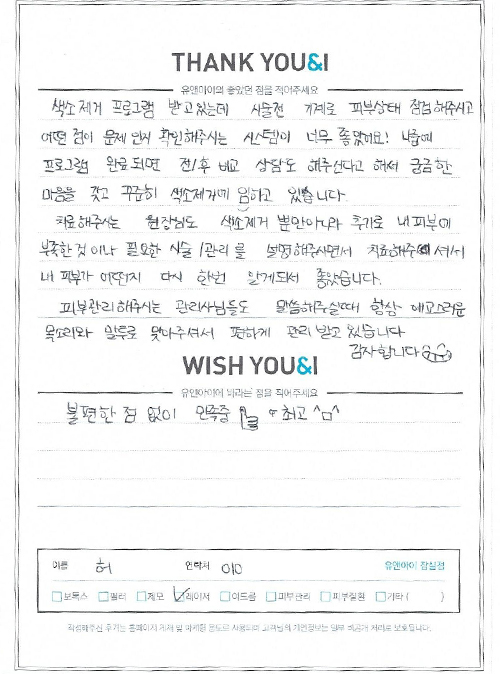 THANK YOU&I
유앤아이의 좋았던 점을 적어주세요
색소제거 프로그램 받고있는데 시술전 기계로 피부상태 점검해주시고
어떤 점이 문제인지 확인해주시는 시스템이 너무 좋았어요! 나중에
프로그램 완료되면 전/후 비교 상담도 해주신다고 해서 궁금한
마음을 갖고 꾸준히 색소제거에 임하고 있습니다.
치료해주시는 원장님도 색소제거 뿐만아니라 추가로 내 피부에
부족한것이나 필요한 시술/관리를 설명해주시면서 치료해주셔서
내 피부가 어떤지 다시 한번 알게되서 좋았습니다.
피부관리해주시는 관리사님들도 말씀해주실때 항상 애교스러운
목소리와 말투로 맞아주셔서 편하게 관리받고 있습니다
감사합니다
WISH YOU&I
유앤아이에 바라는 점을 적어주세요
불편한 점 없이 만족중 최고 ^ㅁ^
이름 허 연락처 010 유앤아이 잠실점
보톡스 필러 제모 레이저 여드름 피부관리 피부질환 기타 ( )
작성해주신 후기는 홈페이지 게재 및 마케팅 용도로 사용되며 고객님의 개인정보는 일부 비공개 처리로 보호됩니다.